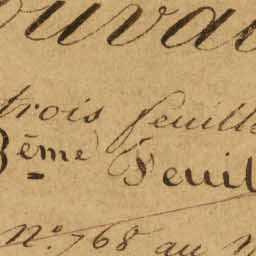 ouva
trois feuille
3ème Feuil
No. 768 au N